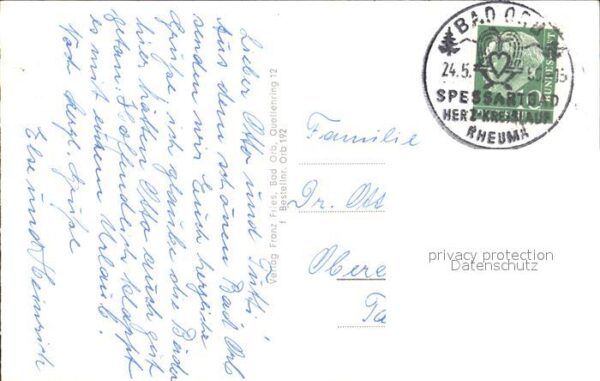 Lieber Otto und Tutti!
Aus dem schönen Bad Orb
senden wir Euch herzliche
Grüße. Ich glaube die Bäder
hier hätten Otto auch gut
getan. Hoffentlich klappt
es mit eurem Urlaub.
Viele Grüße
Else und Heinrich
Verlag Franz Fries, Bad Orb, Quellenring 12
Bestellnr. Orb 192
BAD ORB
24.5.
SPESSARTBAD
HERZ-KREISLAUF
RHEUMA
BUNDESPOST
Familie
Dr. Ott
Obere
Ta
privacy protection
Datenschutz